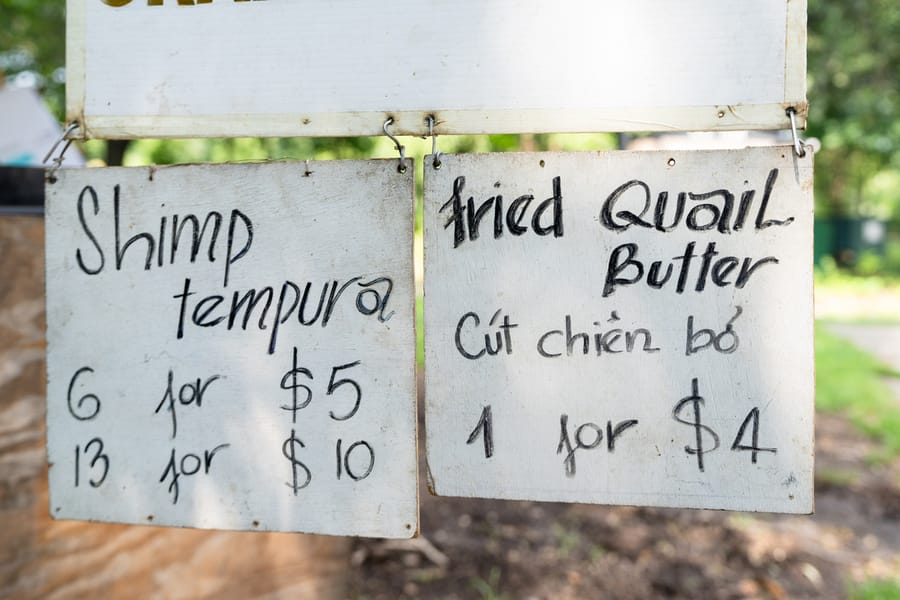 Shimp
tempura
6 for $5
13 for $10
fried Quail
Butter
Cút chiên bỏ
1 for $4